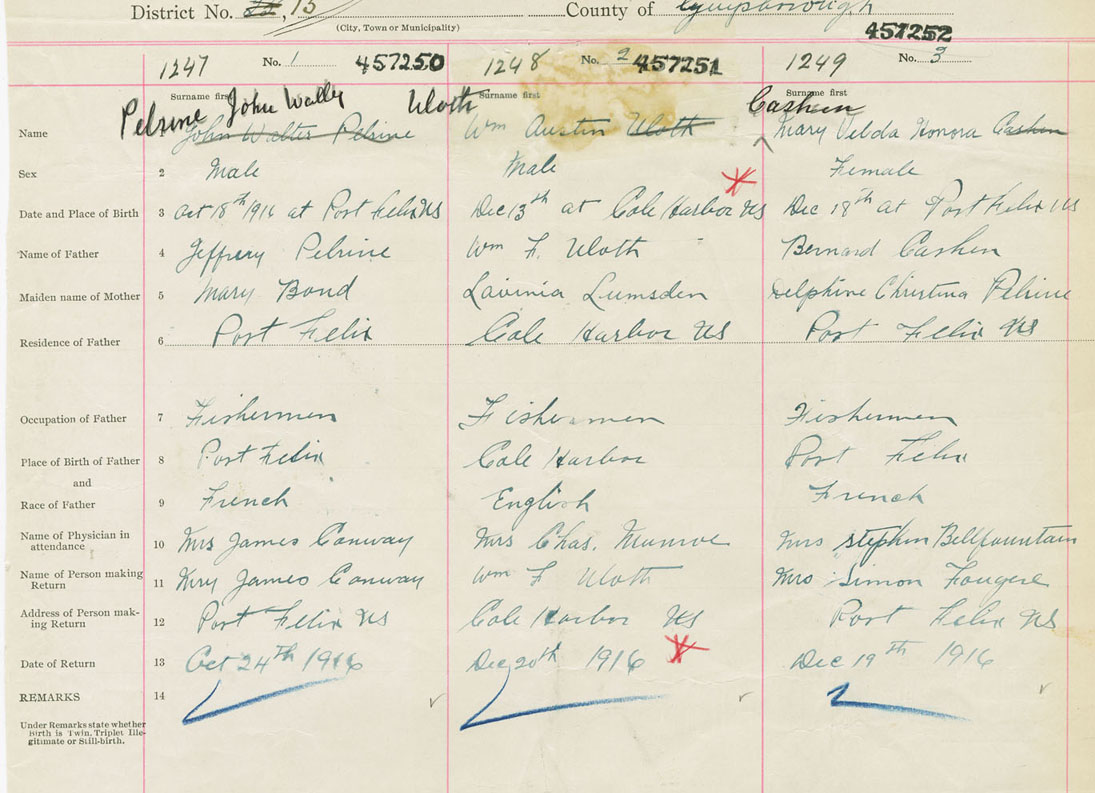 District No. 13 County of Guysborough
(City, Town or Municipality)
457252
1247 No. 1 457250 1248 No. 2 457251 1249 No. 3
Surname first Surname first Surname first
Pelrine John Wally Uloth Cashen
Name John Walter Pelrine Wm Austin Uloth Mary Velda Honora Cashen
Sex 2 Male Male Female
Date and Place of Birth 3 Oct 18th 1916 at Port Felix NS Dec 13th at Cole Harbor NS Dec 18th at Port Felix NS
Name of Father 4 Jeffrery Pelrine Wm F. Uloth Bernard Cashen
Maiden name of Mother 5 Mary Bond Lavinia Lumsden Delphine Christina Pelrine
Residence of Father 6 Port Felix Cole Harbor NS Port Felix NS
Occupation of Father 7 Fishermen Fishermen Fishermen
Place of Birth of Father 8 Port Felix Cole Harbor Port Felix
and
Race of Father 9 French English French
Name of Physician in
attendance 10 Mrs James Conway Mrs Chas. Munroe Mrs stephen Bellfountain
Name of Person making
Return 11 Mry James Conway Wm F Uloth Mrs Simon Fougere
Address of Person mak-
ing Return 12 Port Felix NS Cole Harbor NS Port Felix NS
Date of Return 13 Oct 24th 1916 Dec 20th 1916 Dec 19th 1916
REMARKS 14
Under Remarks state whether
Birth is Twin, Triplet Ille-
gitimate or Still-birth.